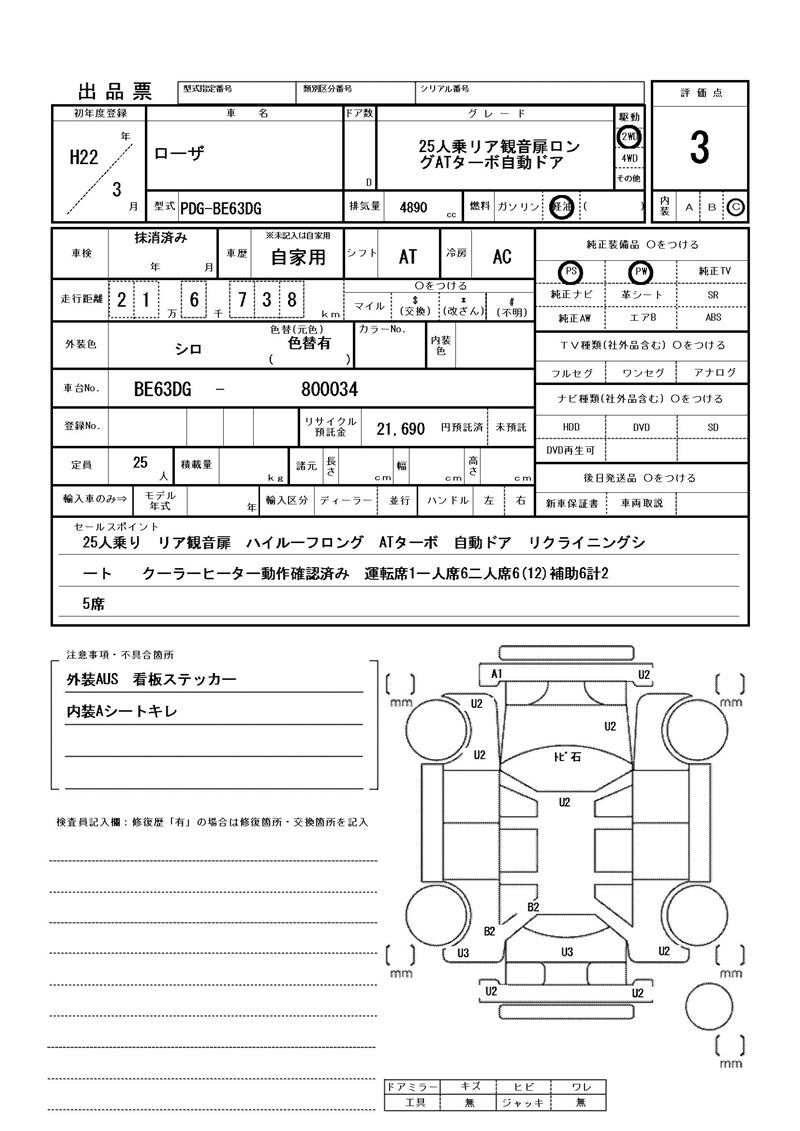 出品票
型式指定番号 類別区分番号 シリアル番号
評価点
3
初年度登録 車名 ドア数 グレード 駆動
H22 年 3 月
ローザ
D
25人乗リア観音扉ロン
グATターボ自動ドア
2WD
4WD
その他
型式 PDG-BE63DG 排気量 4890 cc 燃料 ガソリン 軽油 ( )
内装 A B C
車検 抹消済み 年 月 車歴 ※未記入は自家用 自家用 シフト AT 冷房 AC
走行距離 21万6千738km
○をつける
マイル $(交換) *(改ざん) #(不明)
外装色 シロ 色替(元色) 色替有 ( ) カラーNo. 内装色
車台No. BE63DG - 800034
登録No. リサイクル預託金 21,690 円預託済 未預託
定員 25人 積載量 kg 諸元 長さ cm 幅 cm 高さ cm
輸入車のみ⇒ モデル年式 年 輸入区分 ディーラー 並行 ハンドル 左 右
純正装備品 ○をつける
PS PW 純正TV
純正ナビ 革シート SR
純正AW エアB ABS
TV種類(社外品含む) ○をつける
フルセグ ワンセグ アナログ
ナビ種類(社外品含む) ○をつける
HDD DVD SD
DVD再生可
後日発送品 ○をつける
新車保証書 車両取説
セールスポイント
25人乗り リア観音扉 ハイルーフロング ATターボ 自動ドア リクライニングシ
ート クーラーヒーター動作確認済み 運転席1一人席6二人席6(12)補助6計2
5席
注意事項・不具合箇所
外装AUS 看板ステッカー
内装Aシートキレ
検査員記入欄：修復歴「有」の場合は修復箇所・交換箇所を記入
A1 U2
mm mm
U2
U2
U2 トビ石
U2
B2
B2
U3 U3 U2
mm mm
U2 U2
mm
ドアミラー キズ ヒビ ワレ
工具 無 ジャッキ 無